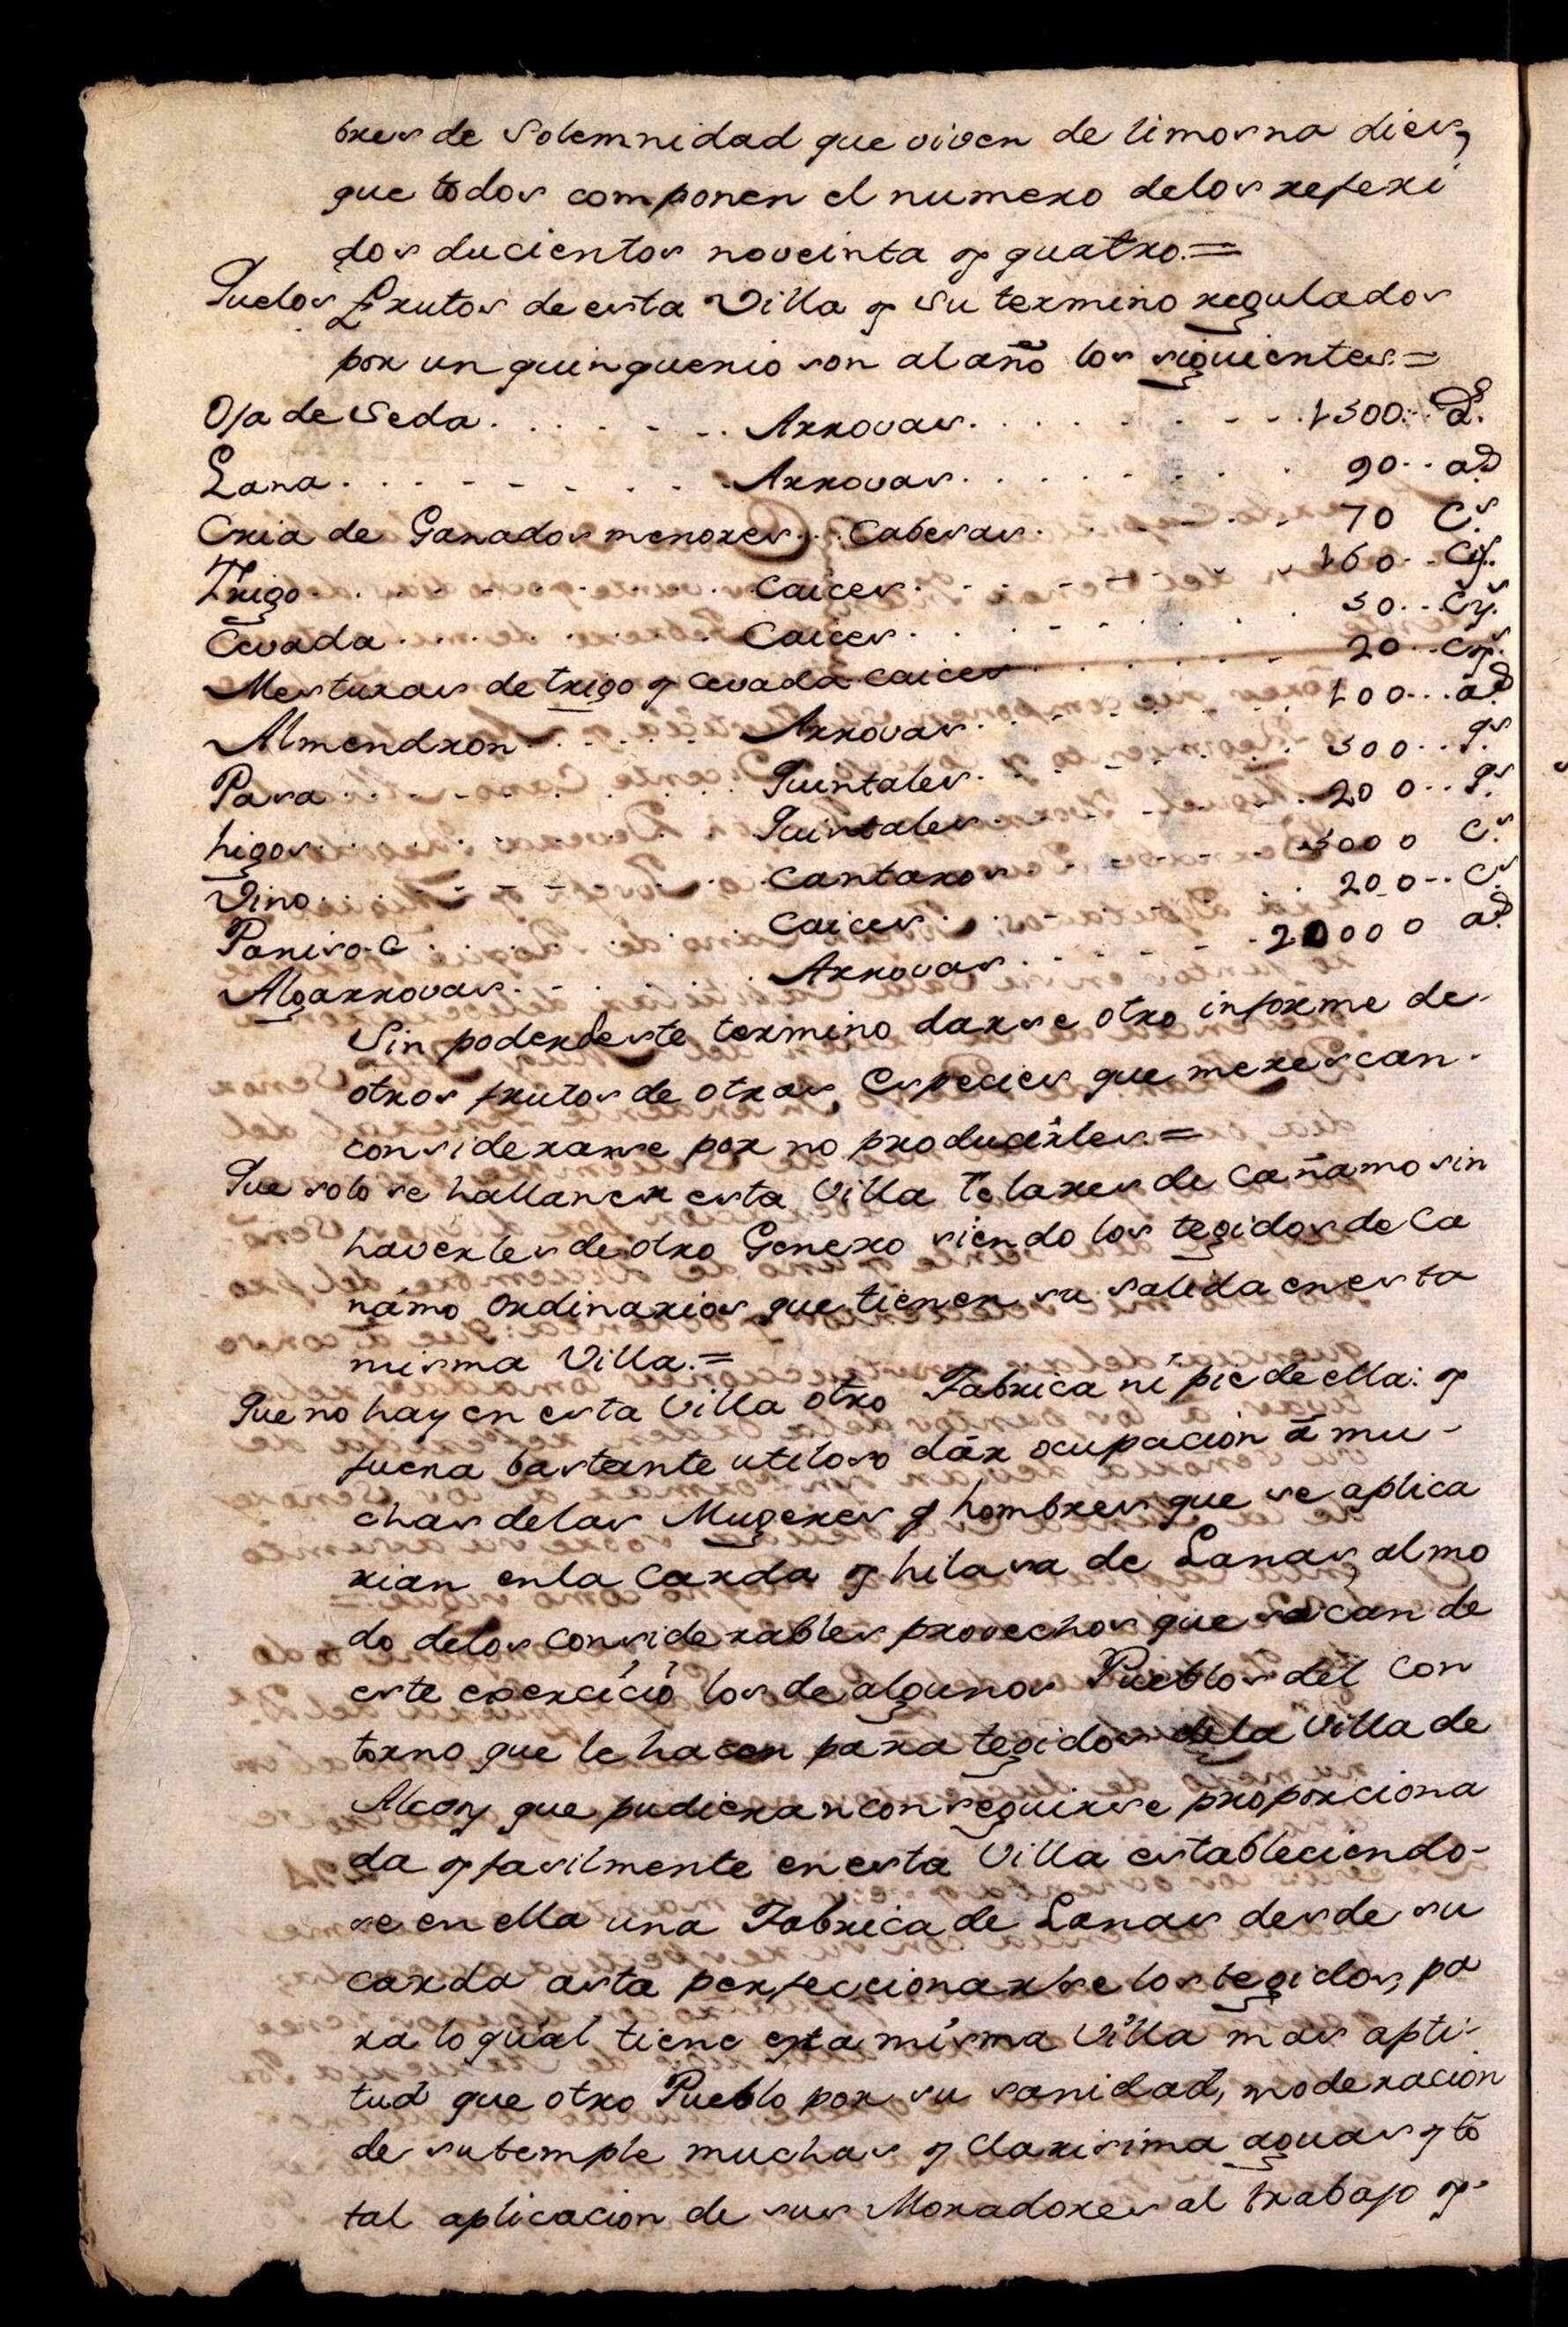 bres de Solemnidad que viven de limosna dies,
que todos componen el numero delos referi
dos ducientos noveinta y quatro.=
Quelos frutos de esta Villa y su termino regulados
por un quinquenio son al año los siguientes.=
Oja de Seda. . . . . . . Arrovas. . . . . . . . . . 1500. . ad.s
Lana. . . . . . . . . . Arrovas. . . . . . . . . 90. . ad
Cria de Ganados menores. . . Cabesas. . . . . . . 70 C.s
Trigo. . . . . . . . . . Caices. . . . . . . . . 160. . Cy.s
Cevada. . . . . . . . . Caices. . . . . . . . . 50. . Cy.s
Mesturas de trigo y cevada caices. . . . . . 20. . Cy.s
Almendron. . . . . . Arrovas. . . . . . . . . 100. . . ad
Pasa. . . . . . . . . . Quintales. . . . . . . . 500. . q.s
higos. . . . . . . . . Quintales. . . . . . . . 200. . q.s
Vino. . . . . . . . . . Cantaros. . . . . . . . 5000 C.s
Paniso. . . . . . . . . Caices. . . . . . . . . 200. . C.s
Algarrovas. . . . . . . Arrovas. . . . . . . 20000 ad
Sin poderdeeste termino darse otro informe de
otros frutos de otras, Especies que merescan
considerarse por no producirles.=
Que solo se hallan en esta Villa Telares de Cañamo sin
haverles de otro Genero siendo los tegidos de Ca
ñamo Ordinarios que tienen su salida en esta
misma Villa.=
Que no hay en esta Villa otro Fabrica ni pie de ella: y
fuera bastante utiloso dár ocupacion á mu-
chas delas Mugeres y hombres que se aplica
rian enla Carda y hilasa de Lanas, al mo
do delos considerables provechos que sacan de
este exercicio los de algunos Pueblos del Con
torno que le hacen para tegidos dela Villa de
Alcoy que pudieran conseguirse proporciona
da y fasilmente en esta Villa estableciendo-
se en ella una Fabrica de Lanas desde su
carda asta perfeccionarse los tegidos, pa
ra lo qual tiene esta misma Villa mas apti-
tud que otro Pueblo por su sanidad, moderacion
de su temple muchas y clarisima aguas y to
tal aplicacion de sus Moradores al trabajo y